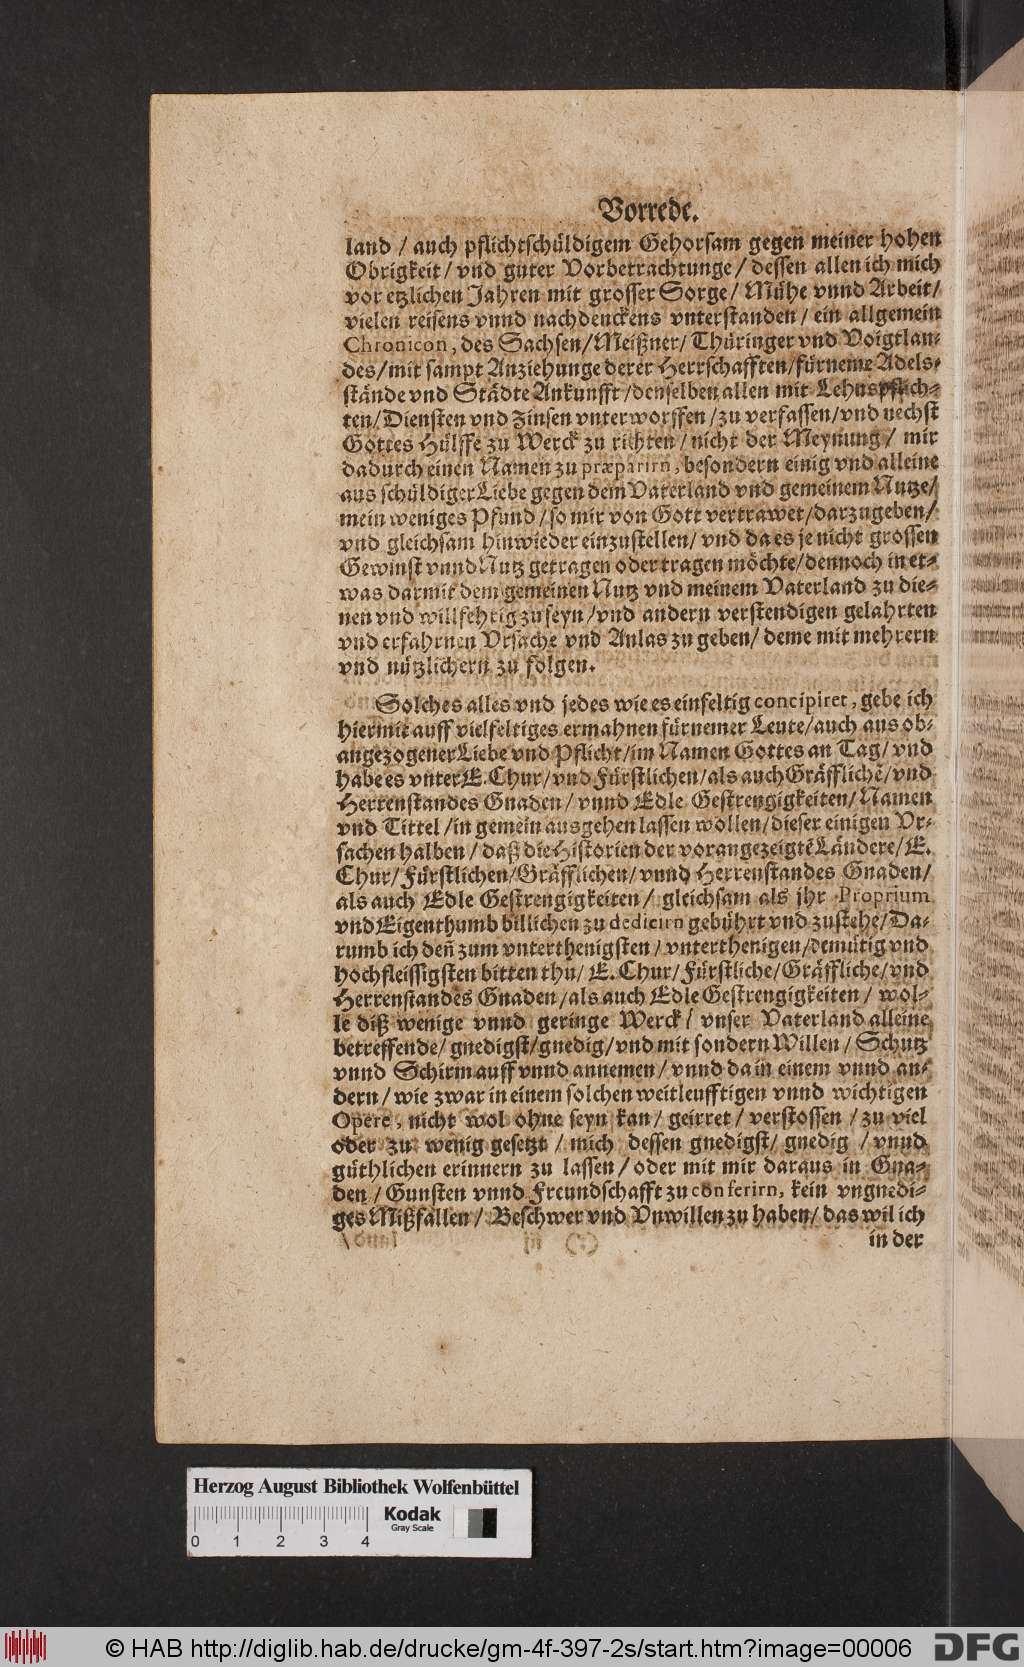 Vorrede.
land / auch pflichtschüldigem Gehorsam gegen meiner hohen
Obrigkeit / vnd guter Vorbetrachtunge / dessen allen ich mich
vor etzlichen Jahren mit grosser Sorge / Mühe vnnd Arbeit /
vielen reisens vnnd nachdenckens vnterstanden / ein allgemein
Chronicon, des Sachsen / Meißner / Thüringer vnd Voigtlan-
des / mit sampt Anziehunge derer Herrschafften / fürneme Adels-
stände vnd Städte Ankunfft / denselben allen mit Lehnspflich-
ten / Diensten vnd Zinsen vnterworffen / zu verfassen / vnd nechst
Gottes Hülffe zu Werck zu richten / nicht der Meynung / mir
dadurch einen Namen zu præparirn, besondern einig vnd alleine
aus schüldiger Liebe gegen dem Vaterland vnd gemeinem Nutze /
mein weniges Pfund / so mir von Gott vertrawet / darzugeben /
vnd gleichsam hinwieder einzustellen / vnd da es je nicht grossen
Gewinst vnnd Nutz getragen oder tragen möchte / dennoch in et-
was darmit dem gemeinen Nutz vnd meinem Vaterland zu die-
nen vnd willfehrig zu seyn / vnd andern verstendigen gelahrten
vnd erfahrnen Vrsache vnd Anlas zu geben / deme mit mehrern
vnd nützlichern zu folgen.
Solches alles vnd jedes wie es einfeltig concipiret, gebe ich
hiermit auff vielfeltiges ermahnen fürnemer Leute / auch aus ob-
angezogener Liebe vnd Pflicht / im Namen Gottes an Tag / vnd
habe es vnter E. Chur / vnd Fürstlichen / als auch Gräffliche͂ / vnd
Herrenstandes Gnaden / vnnd Edle Gestrengigkeiten / Namen
vnd Tittel / in gemein ausgehen lassen wollen / dieser einigen Vr-
sachen halben / daß die Historien der vorangezeigte͂ Ländere / E.
Chur / Fürstlichen / Gräfflichen / vnnd Herrenstandes Gnaden /
als auch Edle Gestrengigkeiten / gleichsam als jhr Proprium
vnd Eigenthumb billichen zu dedicirn gebührt vnd zustehe / Da-
rumb ich den͂ zum vnterthenigsten / vnterthenigen / demütig vnd
hochfleissigsten bitten thu / E. Chur / Fürstliche / Gräffliche / vnd
Herrenstandes Gnaden / als auch Edle Gestrengigkeiten / wol-
le diß wenige vnnd geringe Werck / vnser Vaterland alleine
betreffende / gnedigst / gnedig / vnd mit sondern Willen / Schutz
vnnd Schirm auff vnnd annemen / vnnd da in einem vnnd an-
dern / wie zwar in einem solchen weitleufftigen vnnd wichtigen
Opere, nicht wol ohne seyn kan / geirret / verstossen / zu viel
oder zu wenig gesetzt / mich dessen gnedigst / gnedig / vnnd
güthlichen erinnern zu lassen / oder mit mir daraus in Gna-
den / Gunsten vnnd Freundschafft zu conferirn, kein vngnedi-
ges Mißfallen / Beschwer vnd Vnwillen zu haben / das wil ich
in der
Herzog August Bibliothek Wolfenbüttel
Kodak
Gray Scale
0 1 2 3 4
© HAB http://diglib.hab.de/drucke/gm-4f-397-2s/start.htm?image=00006
DFG